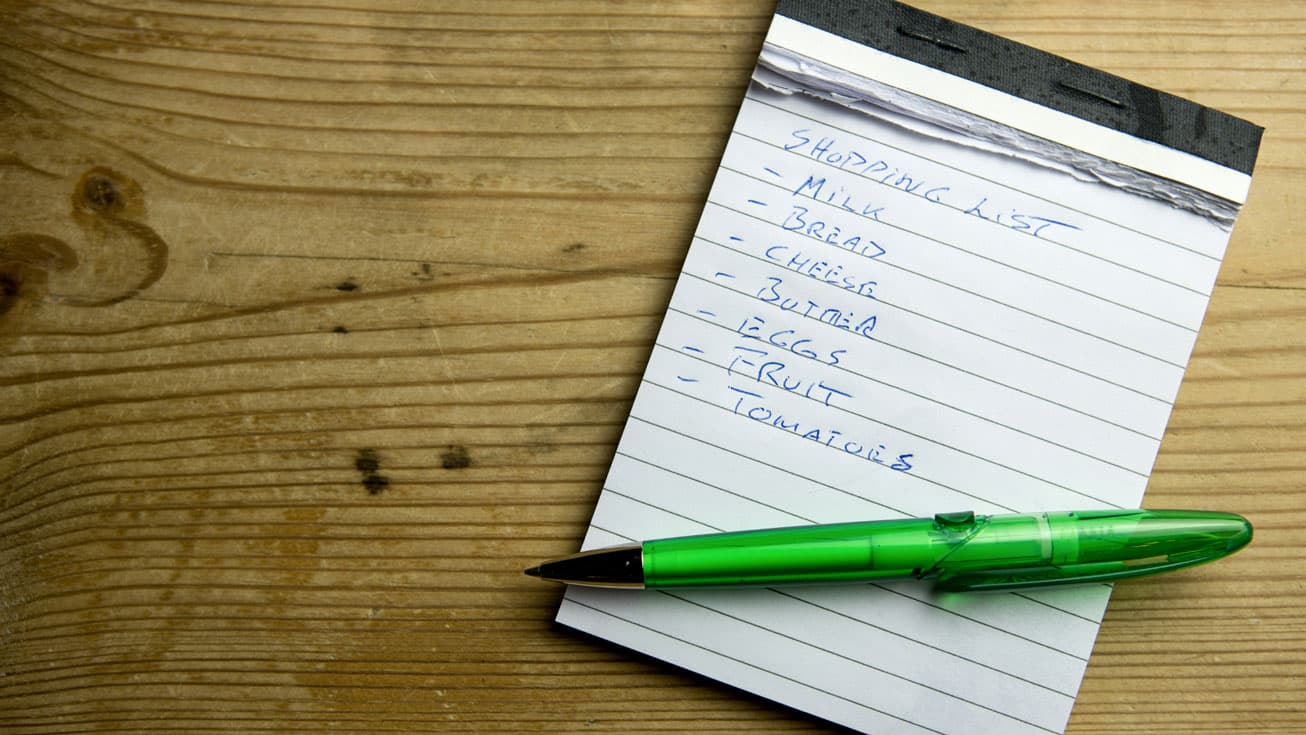 SHOPPING LIST
- MILK
- BREAD
- CHEESE
- BUTTER
- EGGS
- FRUIT
- TOMATOES